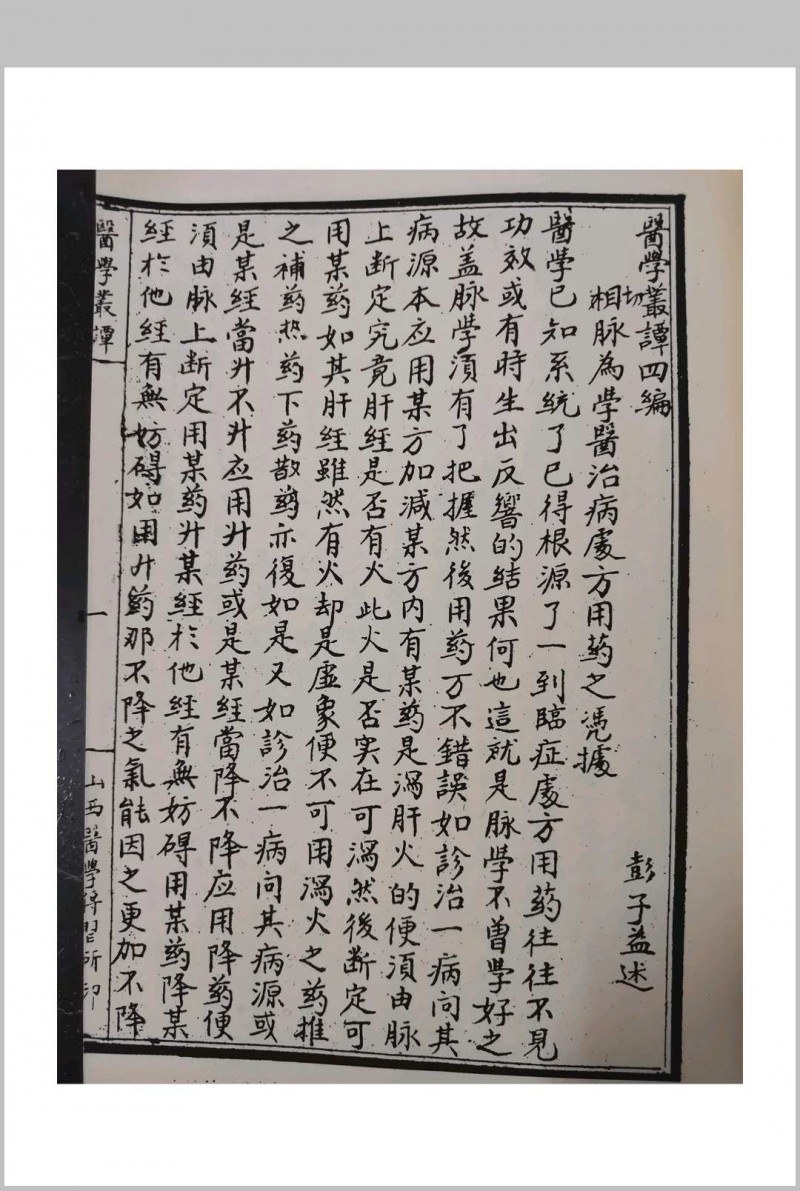 醫學叢譚四編
彭子益述
切
相脉為學醫治病處方用药之凭據
醫學已知系統了已得根源了一到臨症處方用药往往不見
功效或有時生出反響的結果何也這就是脉學不曾學好之
故盖脉學須有了把握然後用药万不錯誤如診治一病问其
病源本应用某方加減某方内有某药是瀉肝火的便須由脉
上断定究竟肝經是否有火此火是否实在可瀉然後断定可
用某药如其肝經雖然有火却是虛象便不可用瀉火之药推
之補药热药下药散药亦復如是又如診治一病问其病源或
是某經當升不升应用升药或是某經當降不降应用降药便
須由脉上断定用某药升某經扵他經有無妨碍用某药降某
經扵他經有無妨碍如用升药那不降之氣能因之更加不降
醫學叢譚
一
山西醫學傳習所印